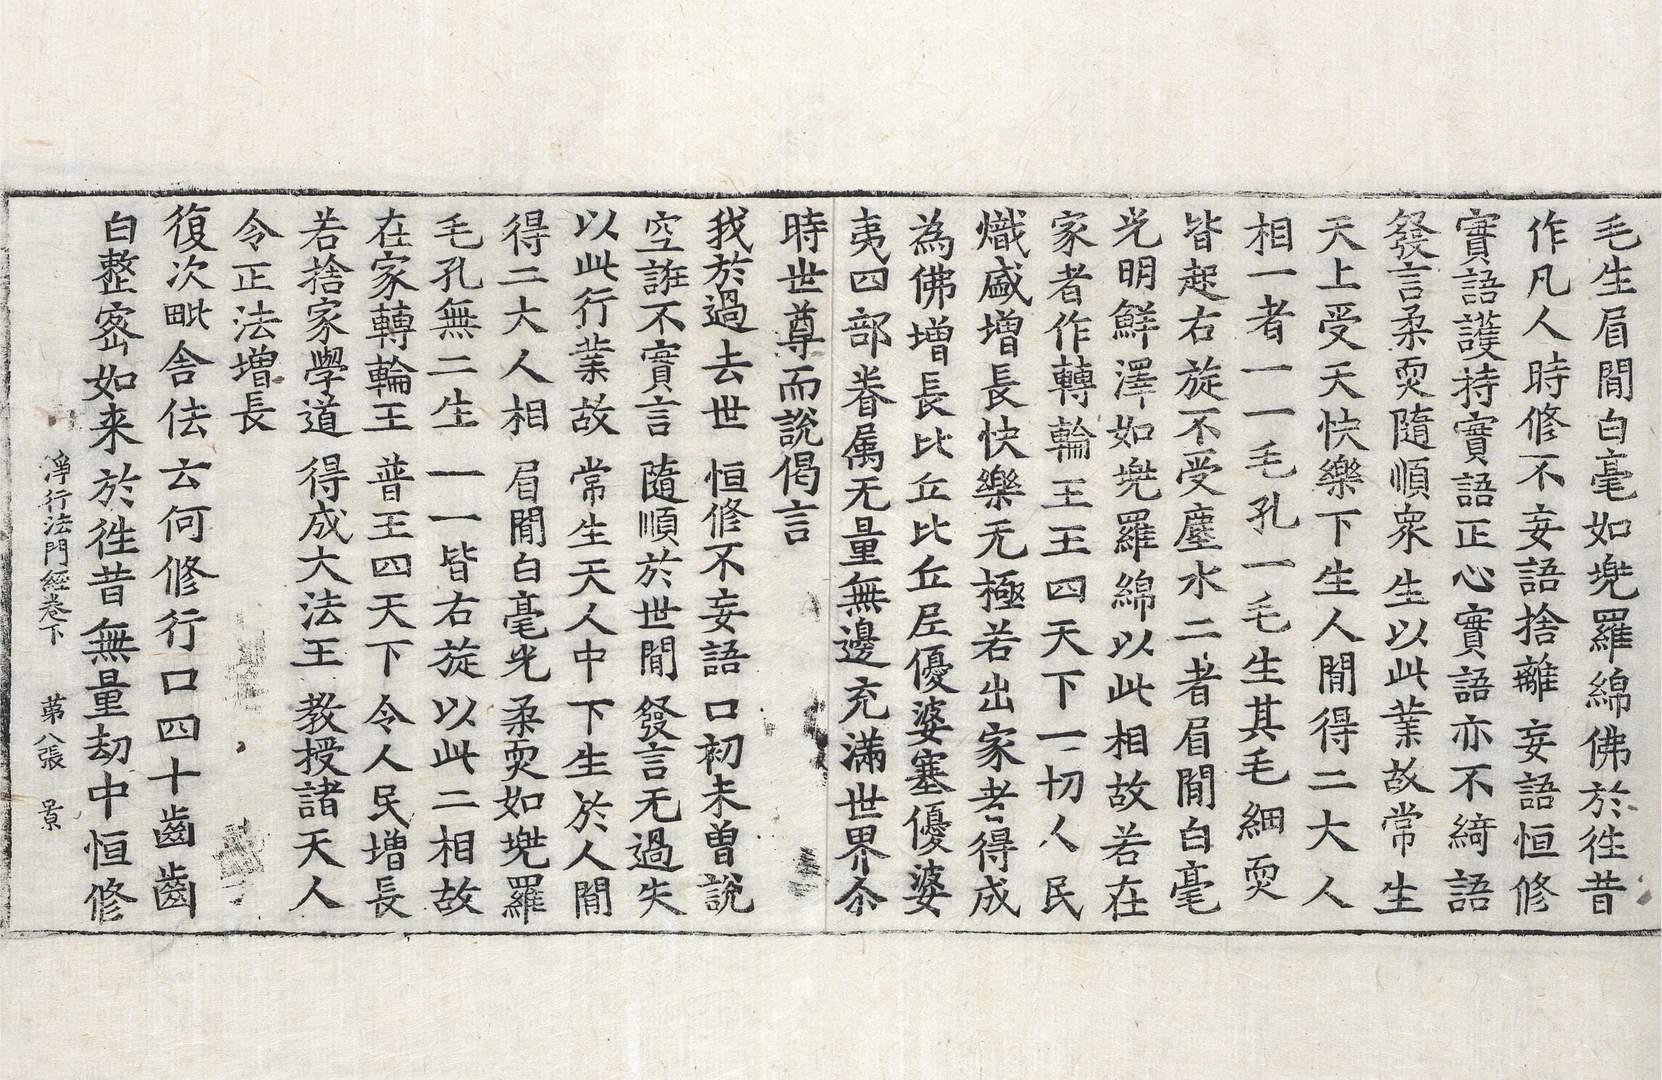 毛生眉閒白毫如兠羅綿佛於徃昔
作凡人時修不妄語捨離妄語恒修
實語護持實語正心實語亦不綺語
發言柔耎隨順衆生以此業故常生
天上受天快樂下生人閒得二大人
相一者一一毛孔一毛生其毛細耎
皆起右旋不受塵水二者眉閒白毫
光明鮮澤如兠羅綿以此相故若在
家者作轉輪王王四天下一切人民
熾盛增長快樂无極若出家者得成
為佛增長比丘比丘𡰱優婆塞優婆
夷四部眷属无量無邊充滿世界尒
時世尊而說偈言
我於過去世 恒修不妄語 口初未曽說
空誑不實言 隨順於世閒 發言无過失
以此行業故 常生天人中 下生於人閒
得二大人相 眉閒白毫光 柔耎如兠羅
毛孔無二生 一一皆右旋 以此二相故
在家轉輪王 普王四天下 令人民增長
若捨家學道 得成大法王 教授諸天人
令正法增長
復次毗舍佉云何修行口四十齒齒
白整宻如来於徃昔無量劫中恒修
淨行法門經卷下 苐八張 景